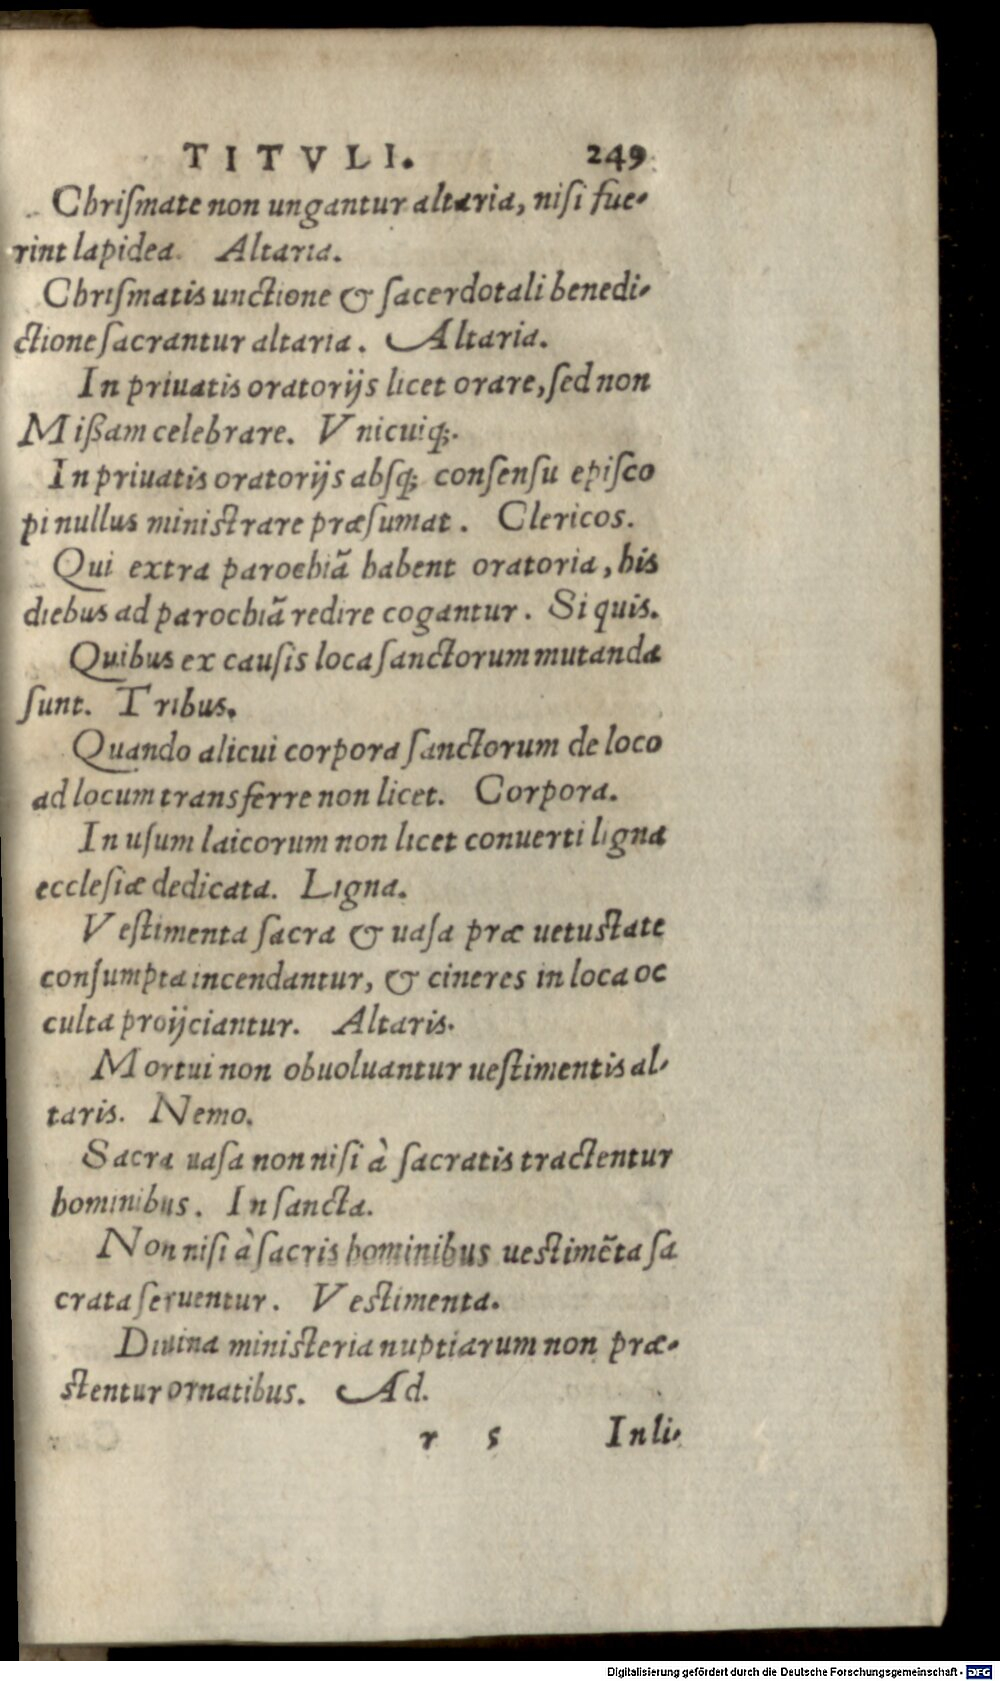 TITVLI. 249
Chriſmate non ungantur altaria, niſi fue-
rint lapidea. Altaria.
Chriſmatis unctione & ſacerdotali benedi-
ctione ſacrantur altaria. Altaria.
In priuatis oratorijs licet orare, ſed non
Mißam celebrare. Vnicuiq;.
In priuatis oratorijs abſq; conſensu epiſco
pi nullus miniſtrare præſumat. Clericos.
Qui extra parochiã habent oratoria, his
diebus ad parochiã redire cogantur. Si quis.
Quibus ex cauſis loca ſanctorum mutanda
ſunt. Tribus.
Quando alicui corpora ſanctorum de loco
ad locum transferre non licet. Corpora.
In uſum laicorum non licet conuerti ligna
eccleſiæ dedicata. Ligna.
Veſtimenta ſacra & uaſa præ uetuſtate
conſumpta incendantur, & cineres in loca oc
culta proijciantur. Altaris.
Mortui non obuoluantur ueſtimentis al-
taris. Nemo.
Sacra uaſa non niſi à ſacratis tractentur
hominibus. In ſancta.
Non niſi à ſacris hominibus ueſtimẽta ſa
crata ſeruentur. Veſtimenta.
Diuina miniſteria nuptiarum non præ-
ſtentur ornatibus. Ad.
r 5 In li-
Digitalisierung gefördert durch die Deutsche Forschungsgemeinschaft - DFG